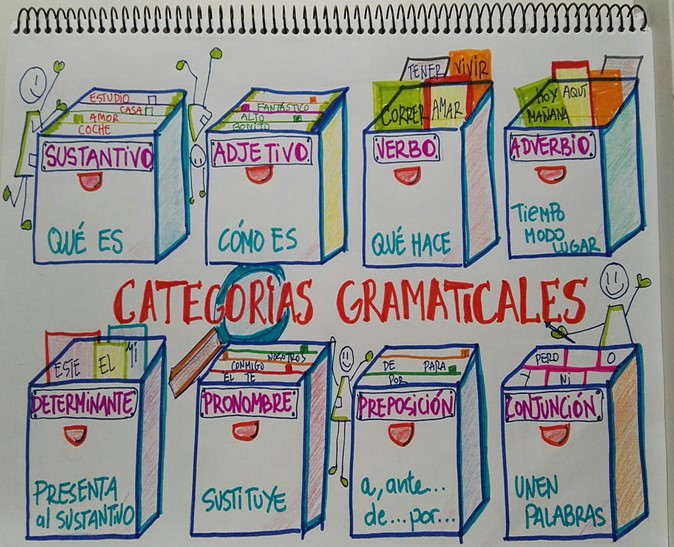 ESTUDIO
CASA
AMOR
COCHE
SUSTANTIVO
QUÉ ES
FANTÁSTICO
ALTO
BONITO
ADJETIVO
CÓMO ES
TENER
VIVIR
CORRER
AMAR
VERBO
QUÉ HACE
HOY
AQUÍ
MAÑANA
ADVERBIO
TIEMPO
MODO
LUGAR
CATEGORÍAS GRAMATICALES
ESTE
EL
MI
DETERMINANTE
PRESENTA
al SUSTANTIVO
NOSOTROS
CONMIGO
EL TE
PRONOMBRE
SUSTITUYE
DE PARA
POR
PREPOSICIÓN
a, ante...
de... por...
PERO O
Y NI
CONJUNCIÓN
UNEN
PALABRAS